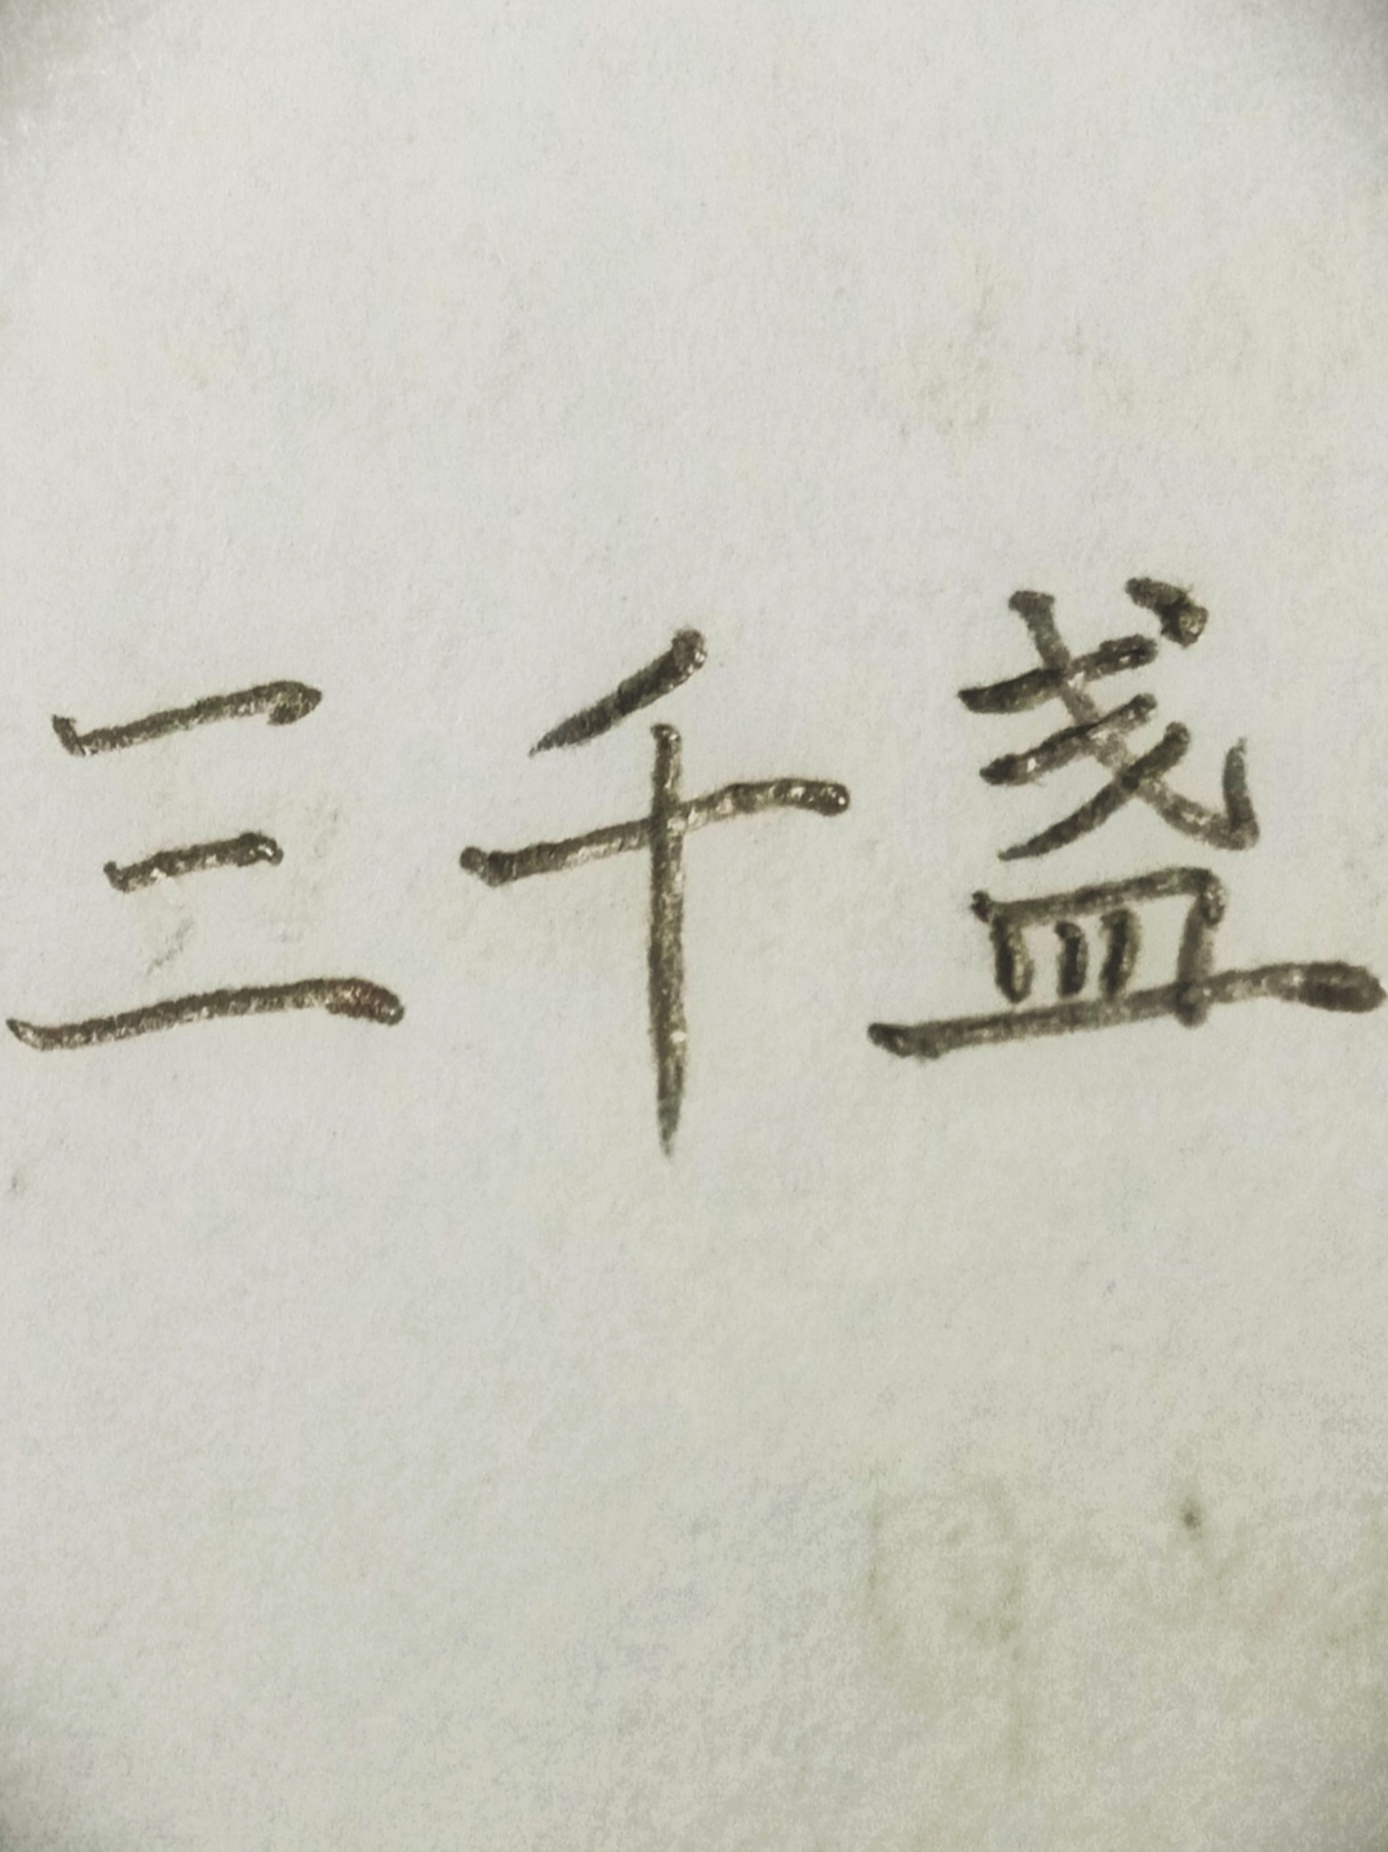 三千盏